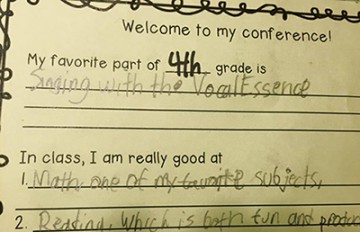 Welcome to my conference!
My favorite part of 4th grade is
Singing with the VocalEssence
In class, I am really good at
1. Math one of my favorite subjects,
2. Reading, Which is both fun and produc